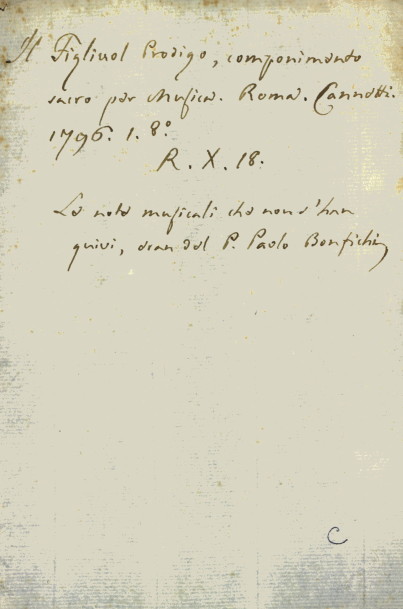 Il Figliuol Prodigo, componimento
sacro per Musica. Roma. Cannetti.
1796. 1. 8.°
R. X. 18.
Le note musicali che non s'han
quivi, eran del P. Paolo Bonfichi
C